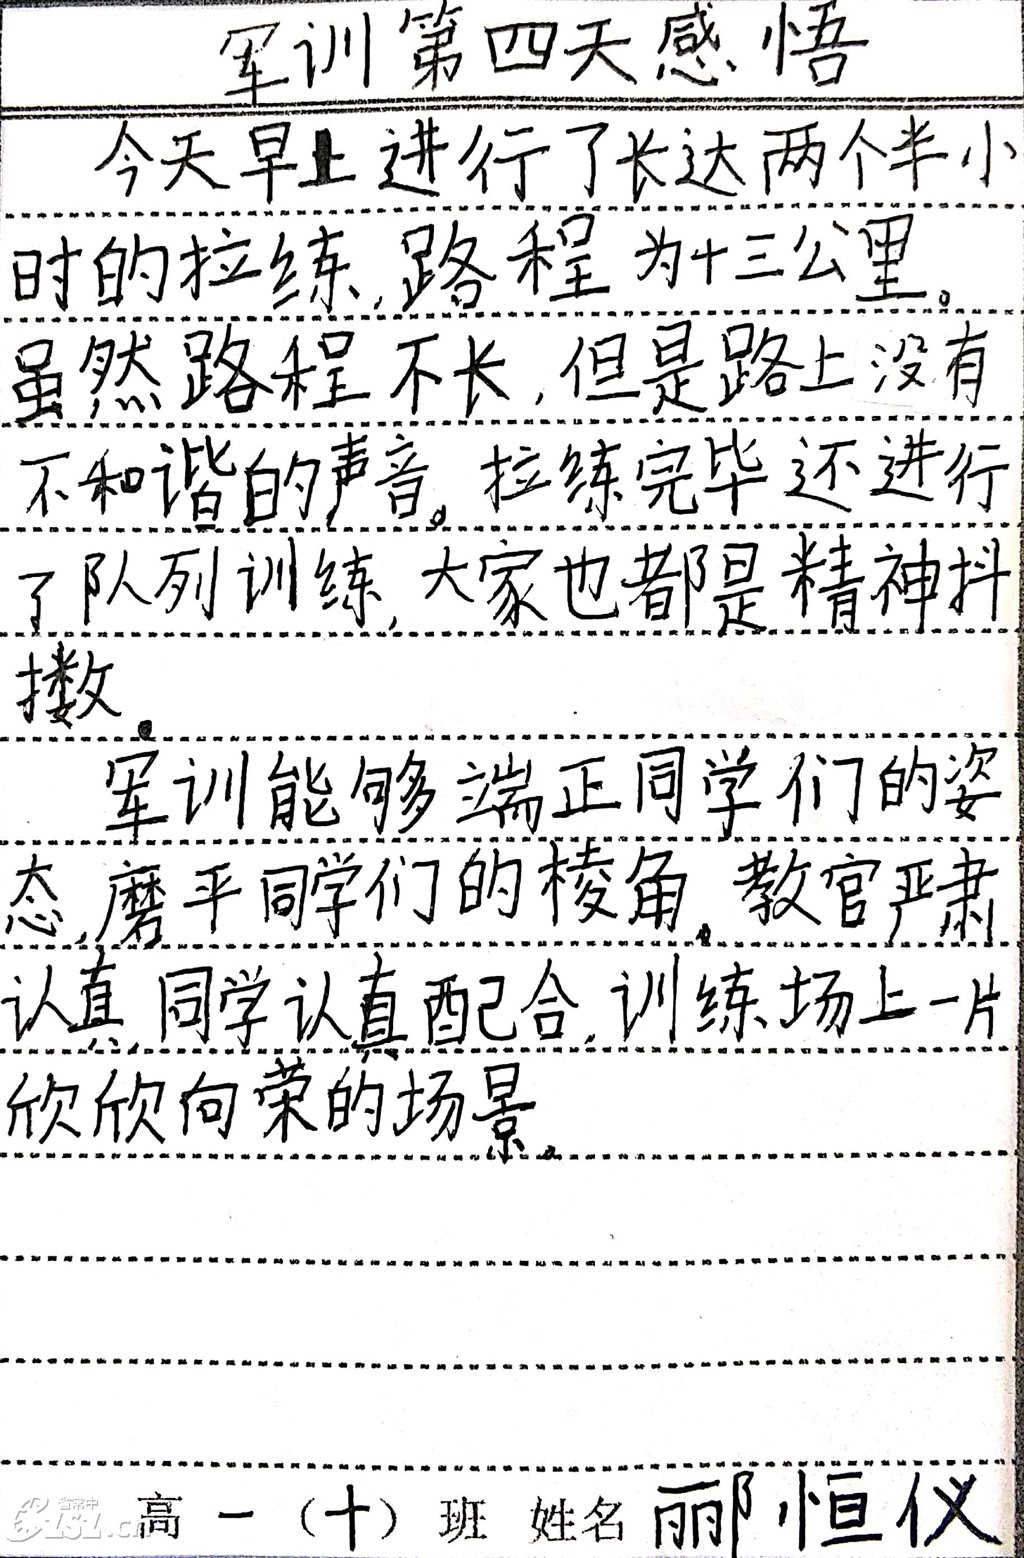 军训第四天感悟
今天早上进行了长达两个半小
时的拉练,路程为十三公里。
虽然路程不长,但是路上没有
不和谐的声音。拉练完毕还进行
了队列训练,大家也都是精神抖
擞。
军训能够端正同学们的姿
态,磨平同学们的棱角。教官严肃
认真,同学认真配合,训练场上一片
欣欣向荣的场景。
高一(十)班 姓名 郦恒仪
省常中